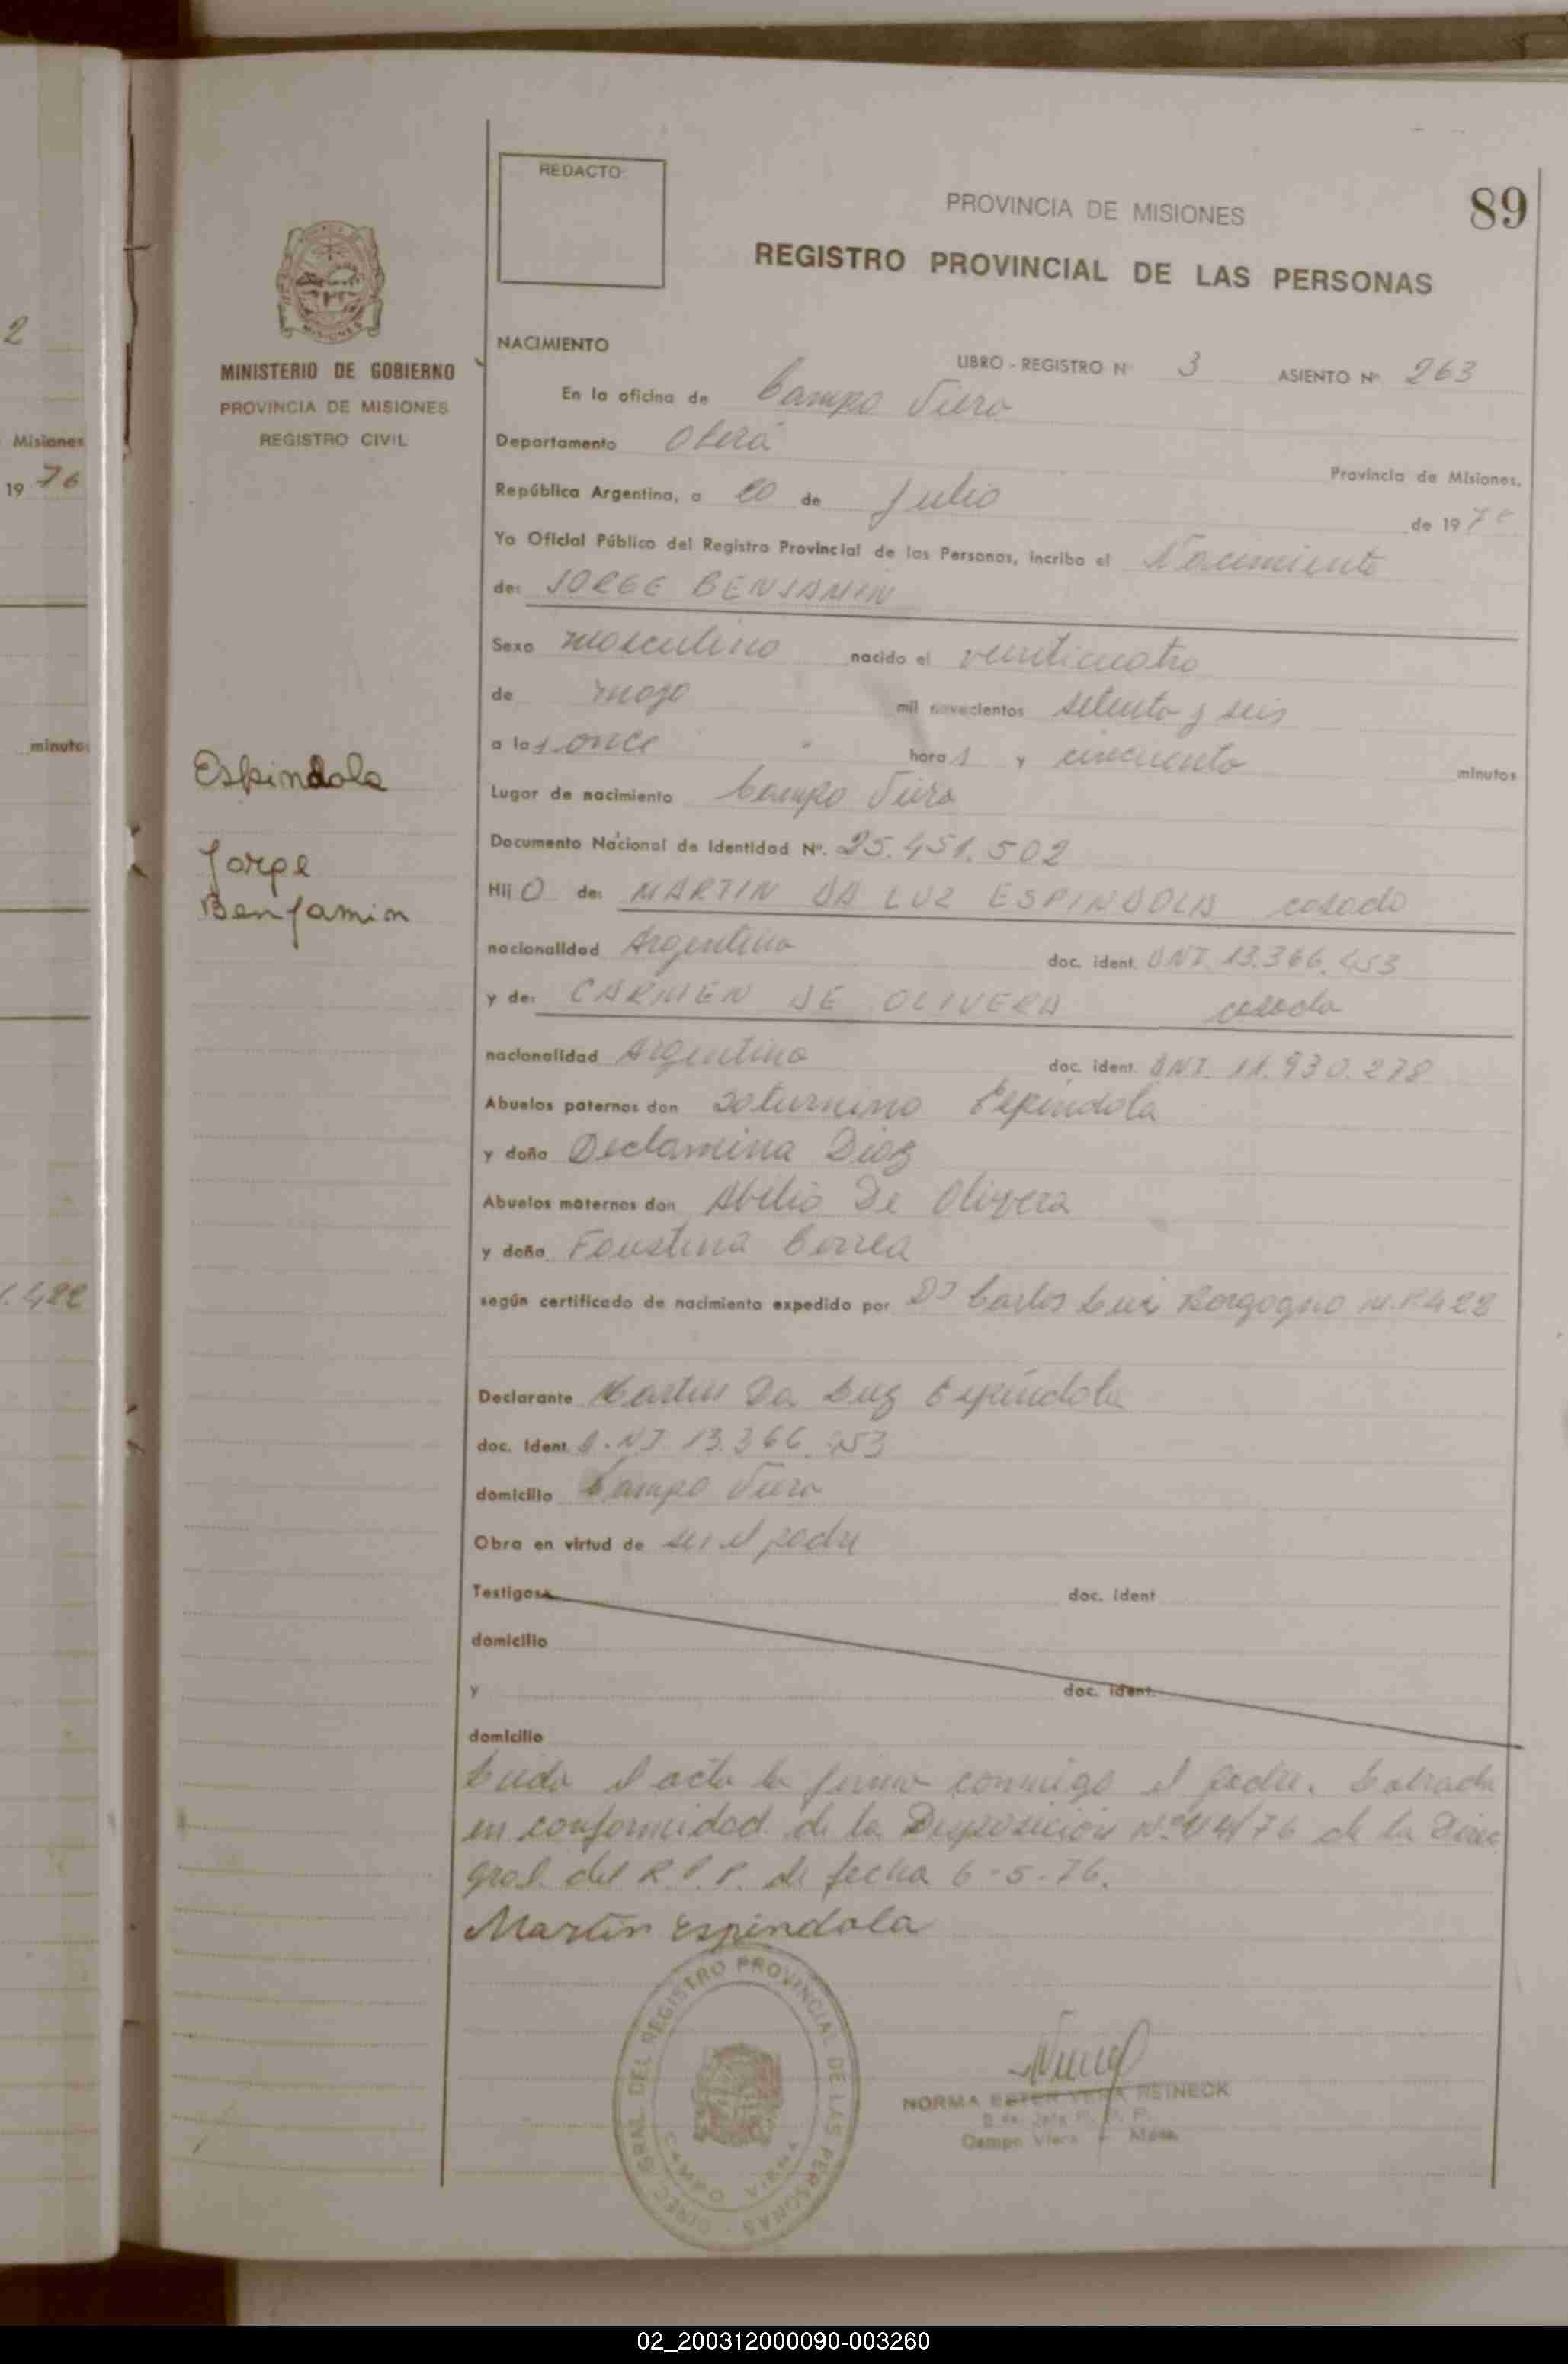 REDACTO
PROVINCIA DE MISIONES
89
REGISTRO PROVINCIAL DE LAS PERSONAS
MISIONES
MINISTERIO DE GOBIERNO
PROVINCIA DE MISIONES
REGISTRO CIVIL
2
Misiones
19 76
minutos
.422
NACIMIENTO
LIBRO - REGISTRO Nº 3 ASIENTO Nº 263
En la oficina de Campo Viera
Departamento Oberá
Provincia de Misiones,
República Argentina, a de Julio de 197
Yo Oficial Público del Registro Provincial de las Personas, incribo el Nacimiento
de: JORGE BENJAMIN
Sexo masculino nacido el veinticuatro
de mayo mil novecientos setenta y seis
a las once horas y cincuenta minutos
Lugar de nacimiento Campo Viera
Documento Nacional de Identidad Nº. 25.451.502
Espindola
Jorge
Benjamin
Hijo de: MARTIN DA LUZ ESPINDOLA casado
nacionalidad Argentina doc. ident. DNI. 13.366.453
y de: CARMEN DE OLIVERA casada
nacionalidad Argentina doc. ident. DNI. 11.930.278
Abuelos paternos don Saturnino Espindola
y doña Diaz
Abuelos maternos don Abilio De Olivera
y doña Faustina Correa
según certificado de nacimiento expedido por Dr Carlos Luis Borgogno M.P.422
Declarante Martin Da Luz Espindola
doc. Ident. D.N.I. 13.366.453
domicilio Campo Viera
Obra en virtud de ser el padre
Testigos doc. ident
domicilio
y doc. ident.
domicilio
Leida el acta la firma conmigo el padre. Labrada
en conformidad de la Disposición Nº 44/76 de la Direc.
gral. del R.P.P. de fecha 6-5-76.
Martin Espindola
DIREC. GRAL. DEL REGISTRO PROVINCIAL DE LAS PERSONAS
CAMPO VIERA
NORMA ESTER VERA REINECK
Campo Viera - Mnes.
02_200312000090-003260